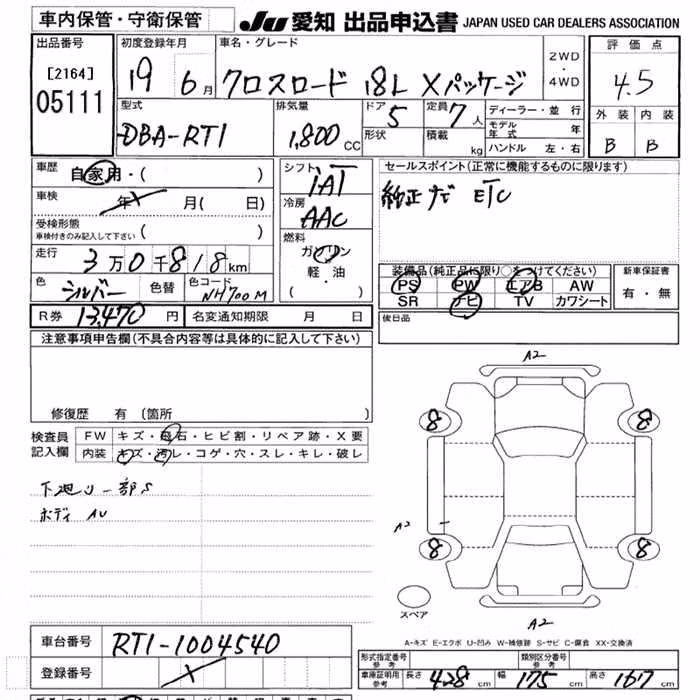 車内保管・守衛保管 JU 愛知 出品申込書 JAPAN USED CAR DEALERS ASSOCIATION
出品番号 初度登録年月 車名・グレード 評価点
[2164] 05111 19 6月 クロスロード 18L Xパッケージ 2WD・4WD 4.5
型式 排気量 ドア 定員 ディーラー・並行 外装 内装
DBA-RT1 1,800cc 5 7人 モデル年式 年 B B
形状 積載 kg ハンドル 左・右
車歴 自家用・( ) シフト セールスポイント(正常に機能するものに限ります)
車検 年 月( 日) IAT 純正ナビ ETC
受検形態 冷房
車検付きのみ記入して下さい ( ) AAC
走行 3万0千818km 燃料
ガソリン 装備品(純正品に限り○をつけてください) 新車保証書
色 シルバー 色替 色コード NH700M 軽・油 PS PW エアB AW 有・無
・( ) SR ナビ TV カワシート
R券 13,470円 名変通知期限 月 日 後日品
注意事項申告欄(不具合内容等は具体的に記入して下さい)
修復歴 有 (箇所 )
検査員記入欄 FW キズ・飛石・ヒビ割・リペア跡・X要
内装 キズ・汚レ・コゲ・穴・スレ・キレ・破レ
下廻り一部S
ボディ AU
A2
8 8
A2
8 8
スペア
A2
A-キズ E-エクボ U-凹み W-補修跡 S-サビ C-腐食 XX-交換済
車台番号 RT1-1004540
形式指定番号 参考 類別区分番号 参考
登録番号
車庫証明用参考 長さ 428cm 幅 175cm 高さ 167cm